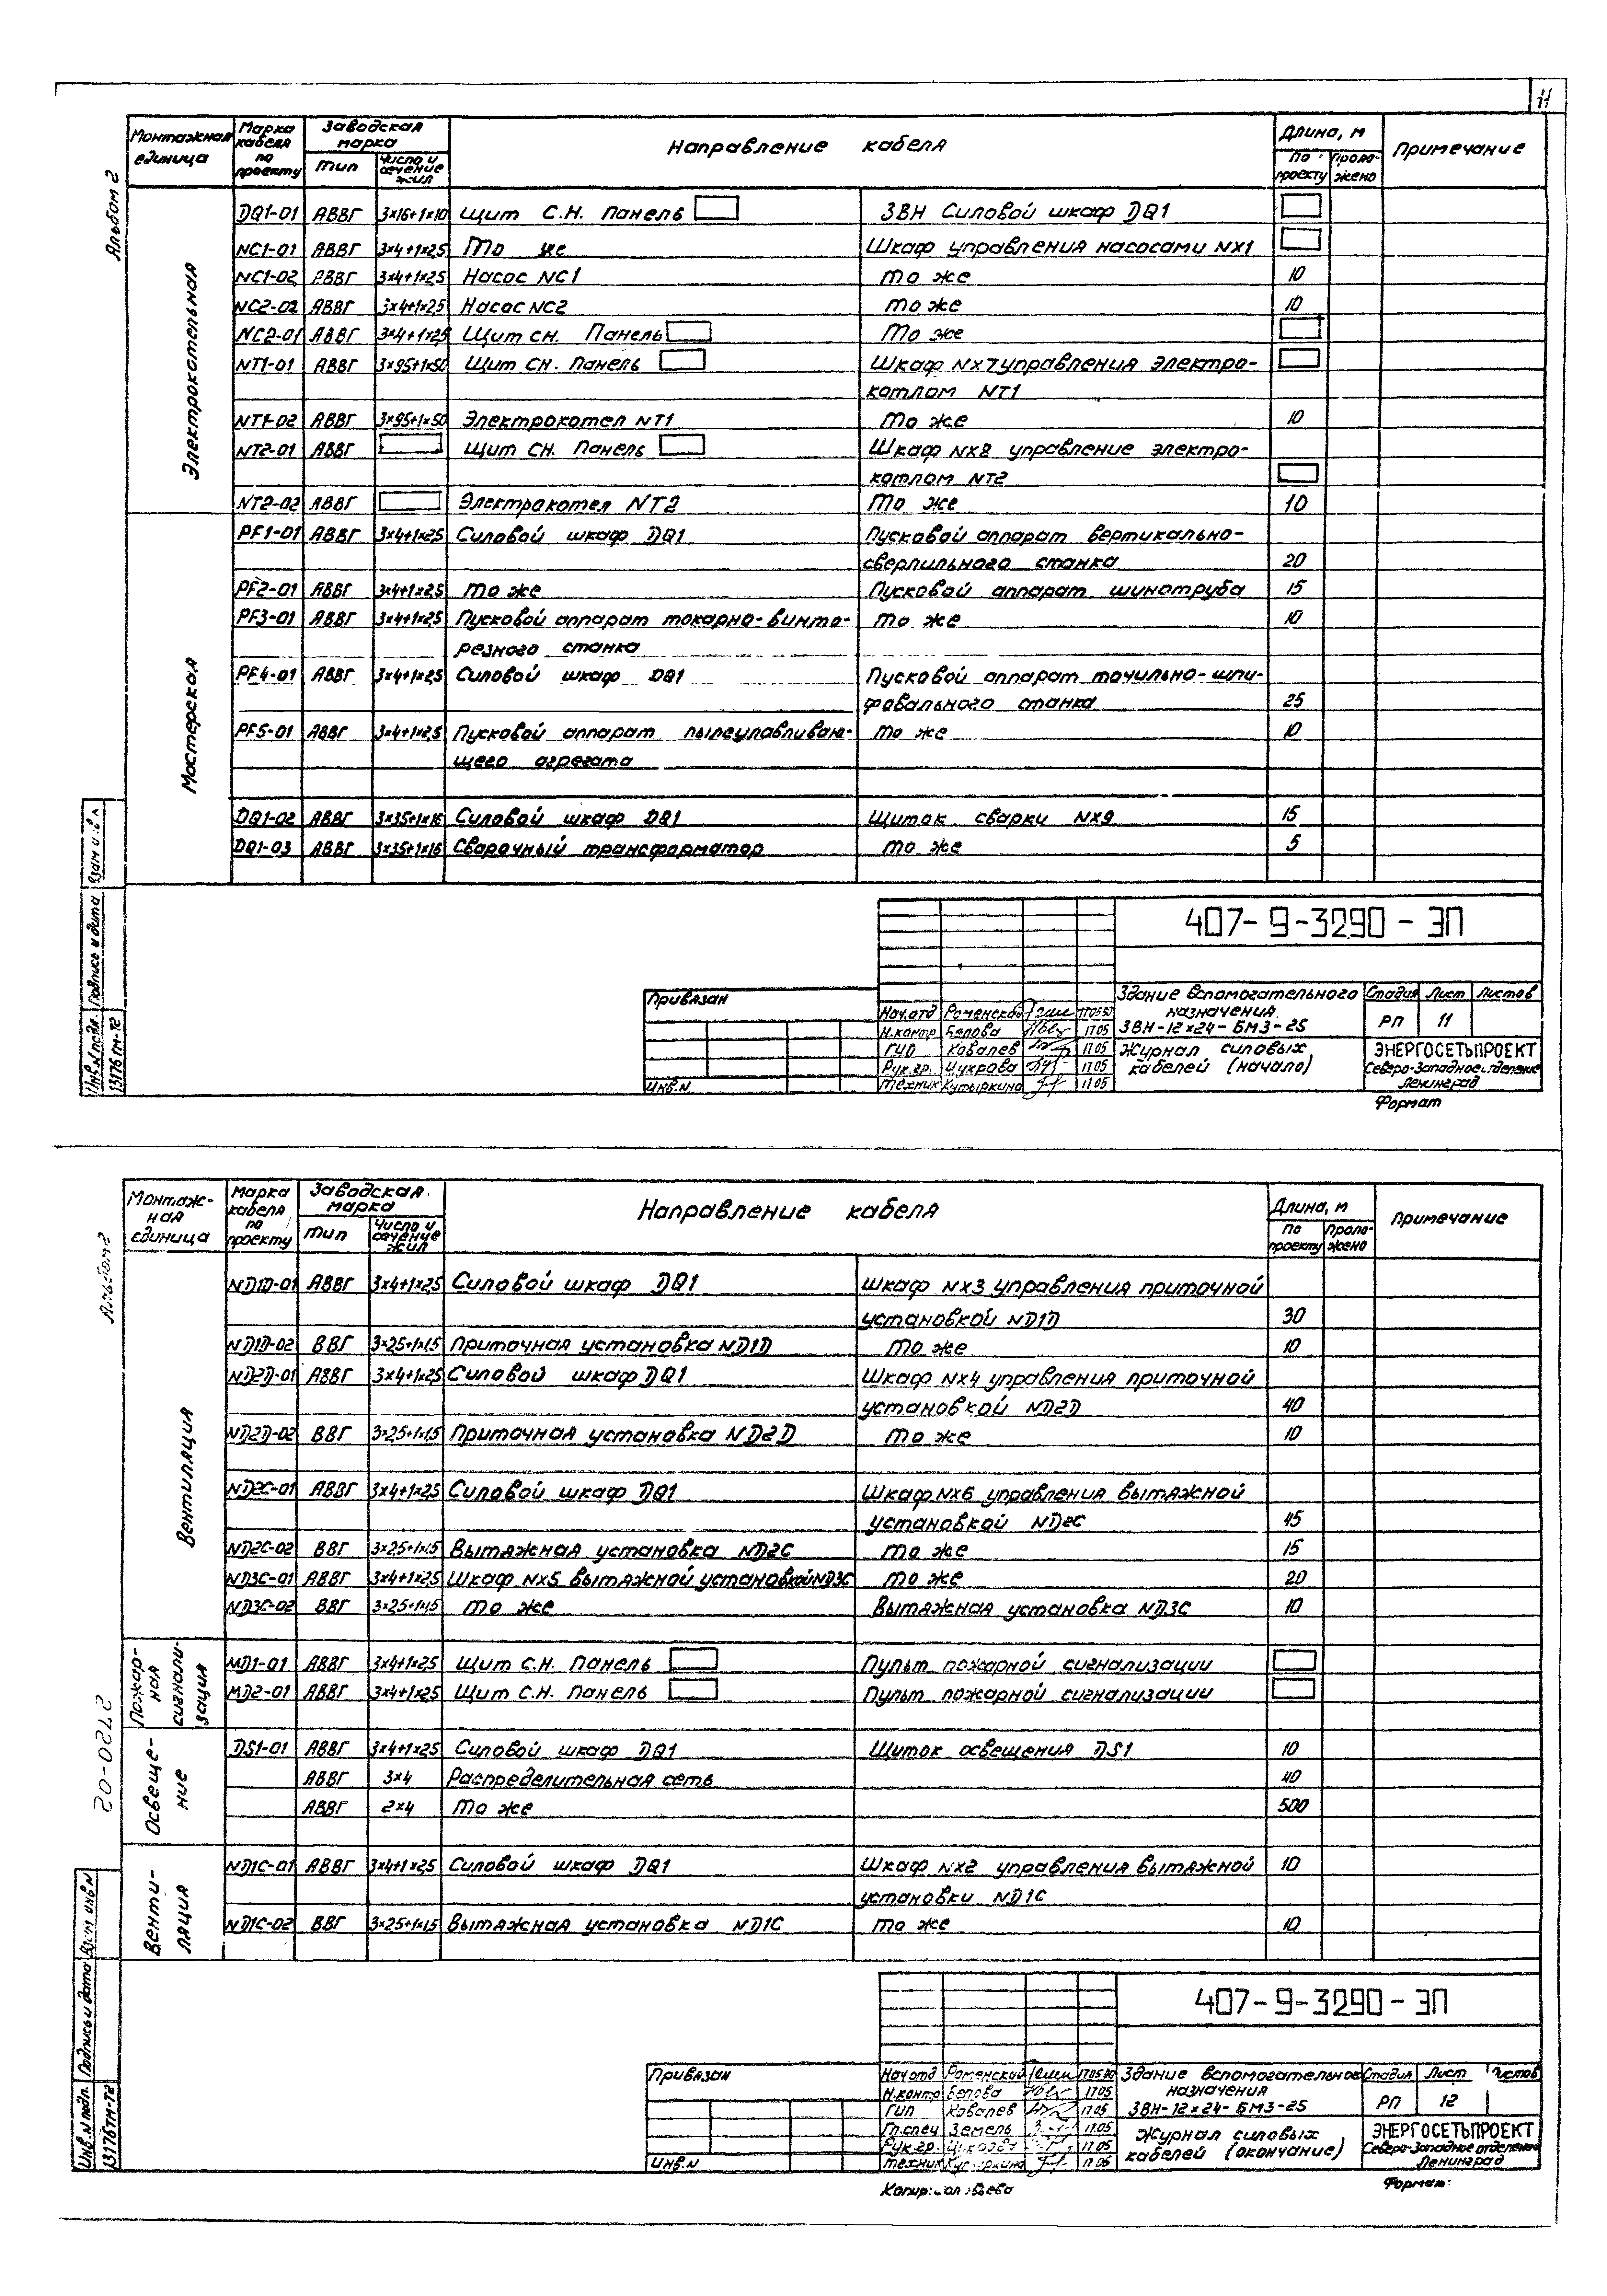 11
Альбом 2
Монтажная единица | Марка кабеля по проекту | Заводская марка | Направление кабеля | Длина, м | Примечание
тип | Число и сечение жил | По проекту | Проложено
Электрокотельная
DQ1-01 АВВГ 3×16+1×10 Щит С.Н. Панель ЗВН Силовой шкаф DQ1
NC1-01 АВВГ 3×4+1×2,5 То же Шкаф управления насосами NX1
NC1-02 АВВГ 3×4+1×2,5 Насос NC1 то же 10
NC2-02 АВВГ 3×4+1×2,5 Насос NC2 то же 10
NC2-01 АВВГ 3×4+1×2,5 Щит сн. Панель То же
NT1-01 АВВГ 3×95+1×50 Щит СН. Панель Шкаф NX7 управления электро-
котлом NT1
NT1-02 АВВГ 3×95+1×50 Электрокотел NT1 То же 10
NT2-01 АВВГ Щит СН. Панель Шкаф NX8 управление электро-
котлом NT2
NT2-02 АВВГ Электрокотел NT2 То же 10
Мастерская
PF1-01 АВВГ 3×4+1×2,5 Силовой шкаф DQ1 Пусковой аппарат вертикально-
сверлильного станка 20
PF2-01 АВВГ 3×4+1×2,5 то же Пусковой аппарат шинотруба 15
PF3-01 АВВГ 3×4+1×2,5 Пусковой аппарат токарно-винто- то же 10
резного станка
PF4-01 АВВГ 3×4+1×2,5 Силовой шкаф DQ1 Пусковой аппарат точильно-шли-
фовального станка 25
PF5-01 АВВГ 3×4+1×2,5 Пусковой аппарат пылеулавливаю- то же 10
щего агрегата
DQ1-02 АВВГ 3×35+1×16 Силовой шкаф DQ1 Щиток сварки NX9 15
DQ1-03 АВВГ 3×35+1×16 Сварочный трансформатор то же 5
Инв.N подл. Подпись и дата Взам инв
13176 тм-т2
407-9-3290-ЭП
Привязан
Инв.N
Нач.отд Роменский 17.05.90
Н.контр Белова 17.05
ГИП Ковалев 17.05
Рук.гр. Цукрова 17.05
Техник Кутыркина 17.05
Здание вспомогательного
назначения
ЗВН-12×24-БМЗ-25
Стадия Лист Листов
РП 11
Журнал силовых
кабелей (начало)
ЭНЕРГОСЕТЬПРОЕКТ
Северо-Западное отделение
Ленинград
Формат
Альбом 2
Монтаж-ная единица | Марка кабеля по проекту | Заводская марка | Направление кабеля | Длина, м | Примечание
тип | Число и сечение жил | По проекту | Проложено
Вентиляция
ND1D-01 АВВГ 3×4+1×2,5 Силовой шкаф DQ1 Шкаф NX3 управления приточной
установкой ND1D 30
ND1D-02 ВВГ 3×2,5+1×1,5 Приточная установка ND1D то же 10
ND2D-01 АВВГ 3×4+1×2,5 Силовой шкаф DQ1 Шкаф NX4 управления приточной
установкой ND2D 40
ND2D-02 ВВГ 3×2,5+1×1,5 Приточная установка ND2D то же 10
ND2C-01 АВВГ 3×4+1×2,5 Силовой шкаф DQ1 Шкаф NX6 управления вытяжной
установкой ND2C 45
ND2C-02 ВВГ 3×2,5+1×1,5 Вытяжная установка ND2C то же 15
ND3C-01 АВВГ 3×4+1×2,5 Шкаф NX5 вытяжной установкой ND3C то же 20
ND3C-02 ВВГ 3×2,5+1×1,5 то же Вытяжная установка ND3C 10
Пожар-ная сигнали-зация
MD1-01 АВВГ 3×4+1×2,5 Щит С.Н. Панель Пульт пожарной сигнализации
MD2-01 АВВГ 3×4+1×2,5 Щит С.Н. Панель Пульт пожарной сигнализации
Освеще-ние
DS1-01 АВВГ 3×4+1×2,5 Силовой шкаф DQ1 Щиток освещения DS1 10
АВВГ 3×4 Распределительная сеть 40
АВВГ 2×4 то же 500
Венти-ляция
ND1C-01 АВВГ 3×4+1×2,5 Силовой шкаф DQ1 Шкаф NX2 управления вытяжной 10
установки ND1C
ND1C-02 ВВГ 3×2,5+1×1,5 Вытяжная установка ND1C то же 10
2720-02
Инв.N подл. Подпись и дата Взам инв N
13176тм-т2
407-9-3290-ЭП
Привязан
Инв.N
Нач отд Роменский 17.05.90
Н.контр Белова 17.05
ГИП Ковалев 17.05
Гл.спец Земель 17.05
Рук.гр. 17.05
Техник 17.05
Здание вспомогательного
назначения
ЗВН-12×24-БМЗ-25
Стадия Лист Листов
РП 12
Журнал силовых
кабелей (окончание)
ЭНЕРГОСЕТЬПРОЕКТ
Северо-Западное отделение
Ленинград
Копир:
Формат: